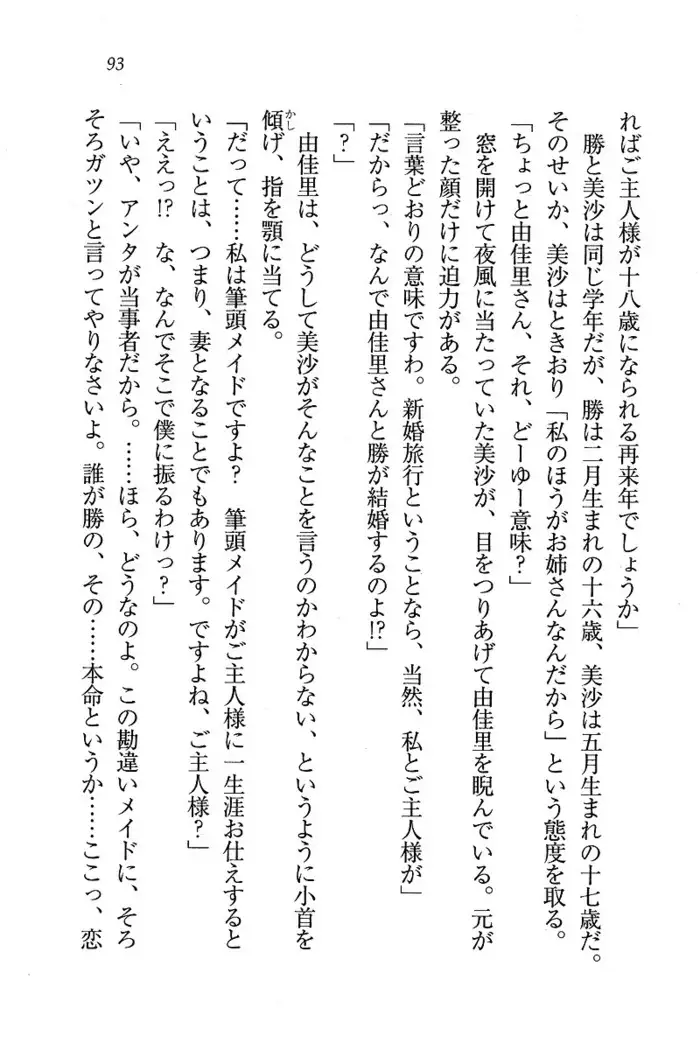 93
ればご主人様が十八歳になられる再来年でしょうか」
　勝と美沙は同じ学年だが、勝は二月生まれの十六歳、美沙は五月生まれの十七歳だ。
そのせいか、美沙はときおり「私のほうがお姉さんなんだから」という態度を取る。
「ちょっと由佳里さん、それ、どーゆー意味？」
　窓を開けて夜風に当たっていた美沙が、目をつりあげて由佳里を睨んでいる。元が
整った顔だけに迫力がある。
「言葉どおりの意味ですわ。新婚旅行ということなら、当然、私とご主人様が」
「だからっ、なんで由佳里さんと勝が結婚するのよ!?」
「？」
　由佳里は、どうして美沙がそんなことを言うのかわからない、というように小首を
傾げ、指を顎に当てる。
かし
「だって……私は筆頭メイドですよ？　筆頭メイドがご主人様に一生涯お仕えすると
いうことは、つまり、妻となることでもあります。ですよね、ご主人様？」
「ええっ!?　な、なんでそこで僕に振るわけっ？」
「いや、アンタが当事者だから。……ほら、どうなのよ。この勘違いメイドに、そろ
そろガツンと言ってやりなさいよ。誰が勝の、その……本命というか……ここっ、恋